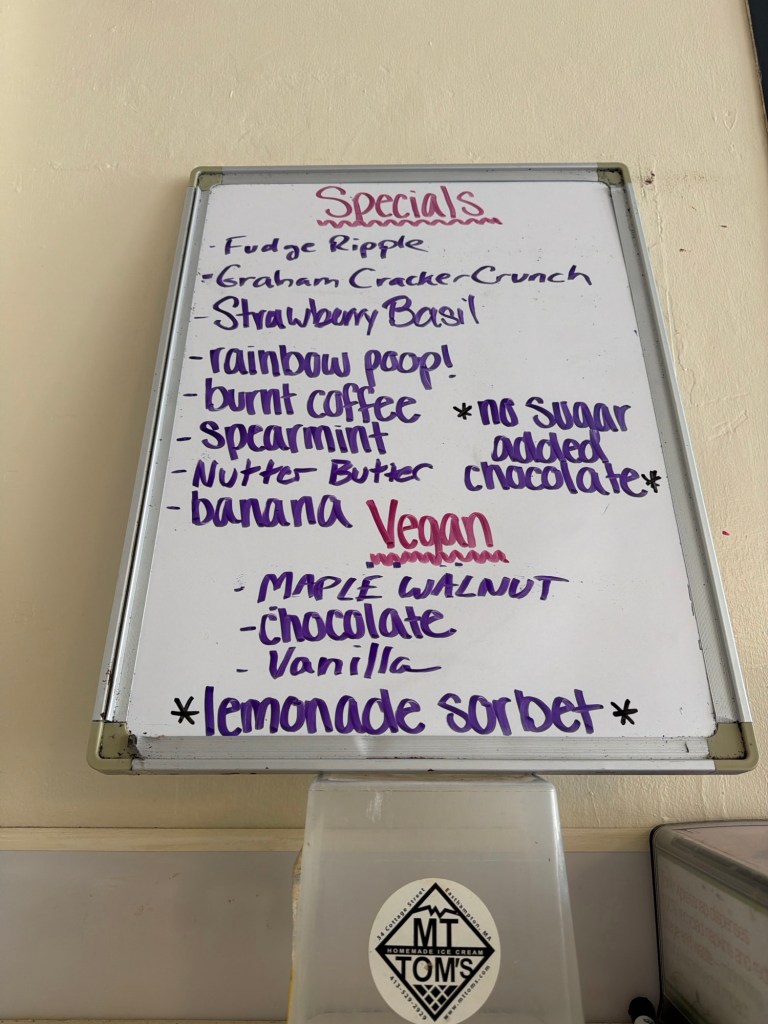 Specials
- Fudge Ripple
- Graham Cracker Crunch
- Strawberry Basil
- rainbow poop!
- burnt coffee
- spearmint
- Nutter Butter
- banana
*no sugar
added
chocolate*
Vegan
- MAPLE WALNUT
- chocolate
- Vanilla
*lemonade sorbet*
34 Cottage Street
Easthampton, MA
MT
HOMEMADE ICE CREAM
TOM'S
www.mttoms.com